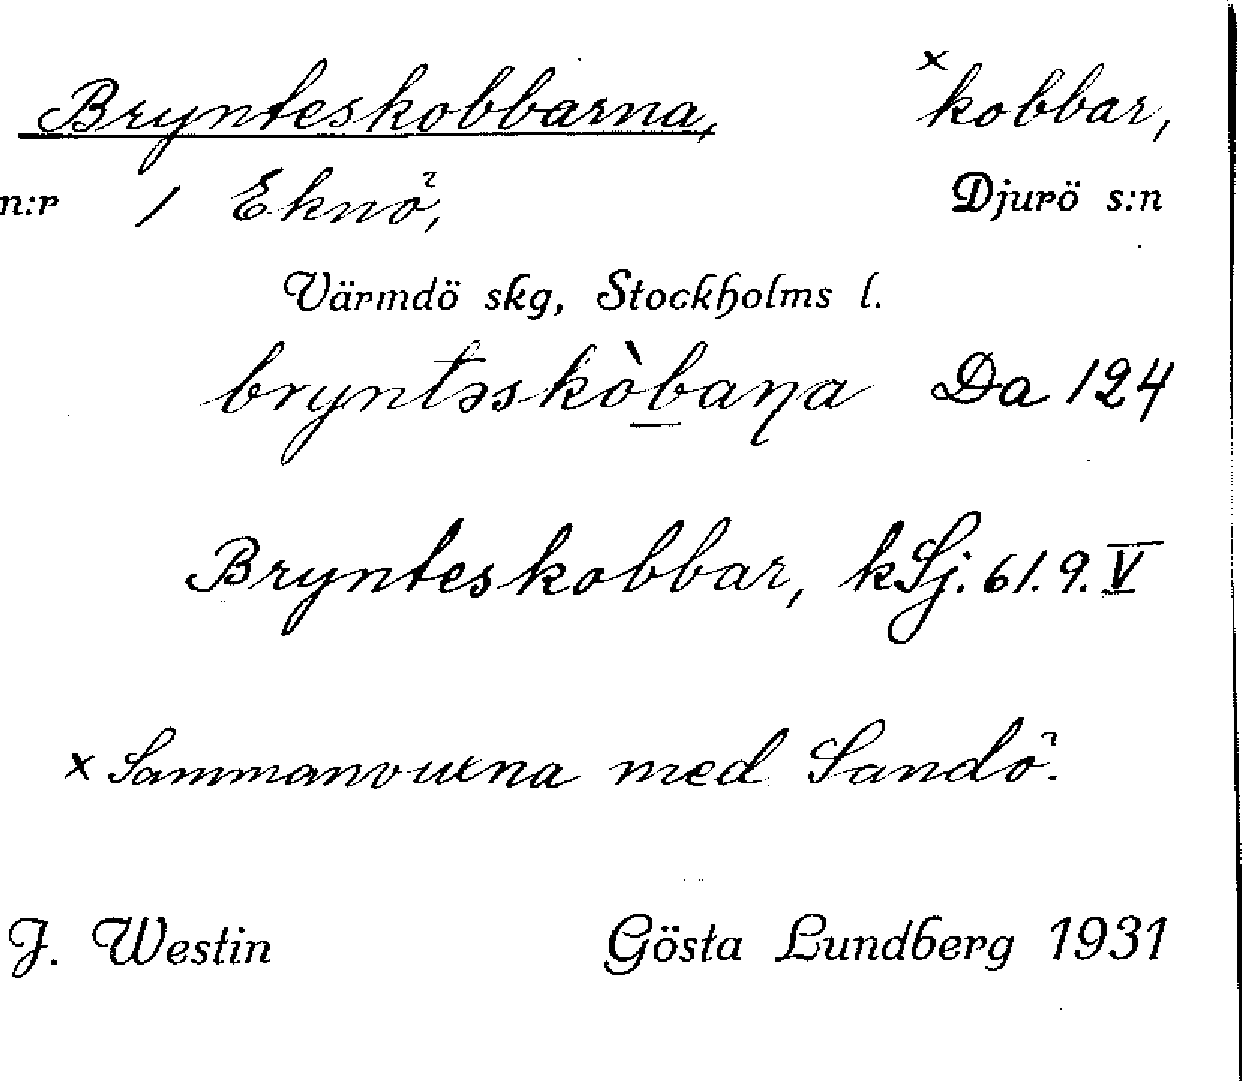 Brynteskobbarna, ˣkobbar,
n:r 1 Eknö, Djurö s:n
Värmdö skg, Stockholms l.
bryntəskòbaɳa Da 124
Brynteskobbar, kSj. 61.9.V
x Sammanvuxna med Sandö.
J. Westin Gösta Lundberg 1931